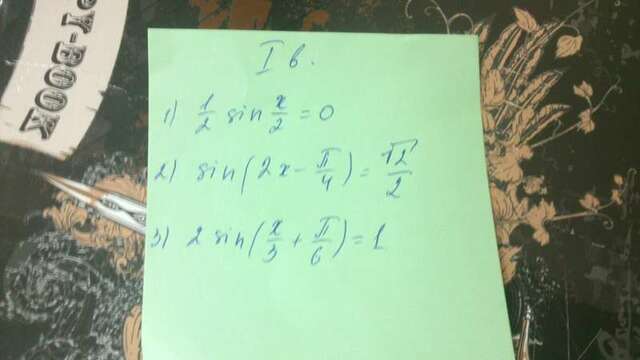 PY-BOOK
I в.
1) 1/2 sin x/2 = 0
2) sin(2x - π/4) = √2/2
3) 2 sin(x/3 + π/6) = 1